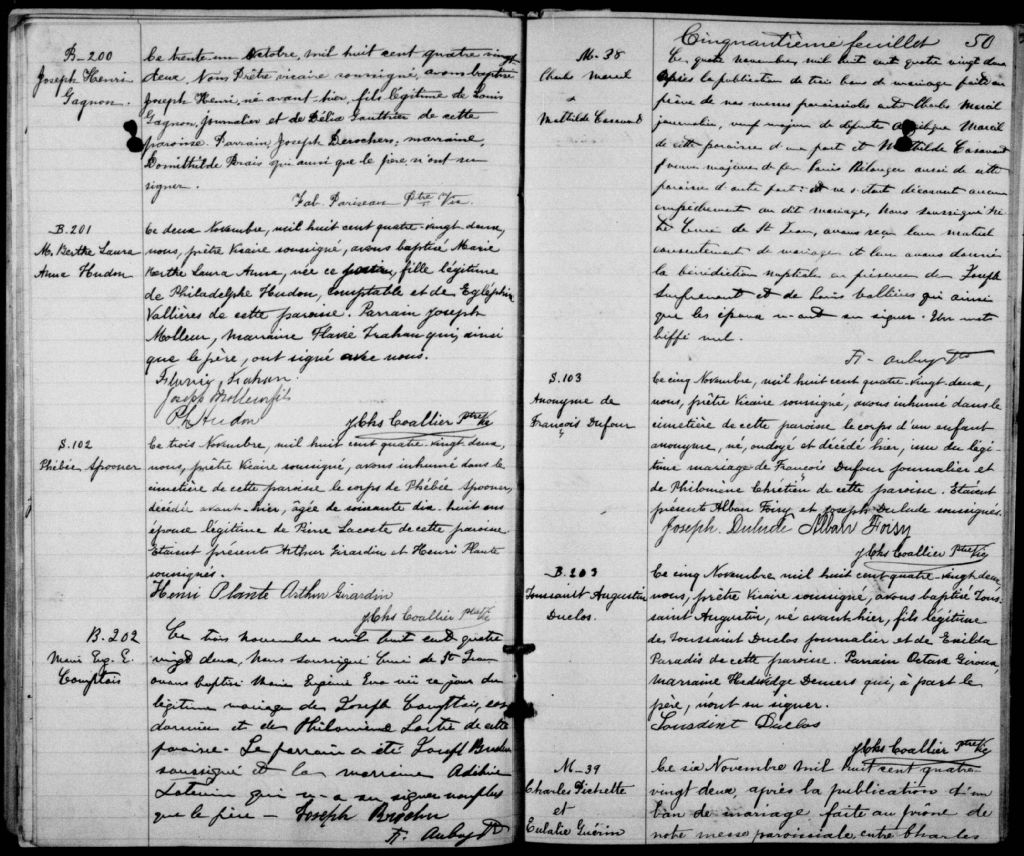 B-200
Joseph Henri
Gagnon.
Ce trente un Octobre, mil huit cent quatre vingt
deux, Nous Prêtre vicaire soussigné, avons baptisé
Joseph Henri, né avant-hier, fils légitime de Louis
Gagnon, Journalier et de Délia Gauthier de cette
paroisse. Parrain, Joseph Derochers, marraine,
Domithilde Brais qui ainsi que le père n'ont su
signer.
Fab. Pariseau Ptre Vic
B.201
M. Berthe Laura
Anna Hudon
Ce deux Novembre, mil huit cent quatre-vingt deux,
nous, prêtre Vicaire soussigné, avons baptisé Marie
Berthe Laura Anna, née ce jour, fille légitime
de Philadelphe Hudon, comptable et de
Vallières de cette paroisse. Parrain Joseph
Molleur, marraine Flavie Trahan qui, ainsi
que le père, ont signé avec nous.
Trahan.
Joseph Molleur fils
Ph Hudon
J Chs Coallier Ptre Vic
S.102
Phébée Spooner
Ce trois Novembre, mil huit cent quatre-vingt deux,
nous, prêtre Vicaire soussigné, avons inhumé dans le
cimetière de cette paroisse le corps de Phébée Spooner,
décédée avant-hier, âgée de soixante dix-huit ans
épouse légitime de Pierre Lacoste de cette paroisse.
Etaient présents Arthur Girardin et Henri Plante
soussignés.
Henri Plante Arthur Girardin
J Chs Coallier Ptre Vic
B.202
Marie Eug. E.
Comptois
Ce trois novembre mil huit cent quatre
vingt deux, Nous soussigné Curé de St Jean
avons baptisé Marie Eugénie Eva née ce jour du
légitime mariage de Joseph Comptois, cor
donnier et de Philomène de cette
paroisse. Le parrain a été Joseph
soussigné et la marraine
qui n'a su signer non plus
que le père — Joseph
F. Aubry Ptre
Cinquantième feuillet 50
M-38
Charles Marcil
&
Mathilde Casavant
Ce quatre novembre, mil huit cent quatre vingt deux
après la publication de trois bans de mariage faite au
prône de nos messes paroissiales entre Charles Marcil
journalier, veuf majeur de défunte Marcil
de cette paroisse d'une part et Mathilde Casavant
veuve majeure de feu Louis Bélanger aussi de cette
paroisse d'autre part: et ne s'étant découvert aucun
empêchement au dit mariage, Nous soussigné
Curé de St Jean, avons reçu leur mutuel
consentement de mariage et leur avons donné
la bénédiction nuptiale en présence de Joseph
Surprenant et de Louis qui ainsi
que les époux n'ont su signer. Un mot
biffé nul.
F. Aubry Ptre
S.103
Anonyme de
François Dufour
Ce cinq Novembre, mil huit cent quatre-vingt-deux,
nous, prêtre Vicaire soussigné, avons inhumé dans le
cimetière de cette paroisse le corps d'un enfant
anonyme, né, ondoyé et décédé hier, issu du légi-
time mariage de François Dufour journalier et
de Philomène Chrétien de cette paroisse. Etaient
présents Alban Foisy et Joseph Dulude soussignés.
Joseph Dulude Alban Foisy
J Chs Coallier Ptre Vic
B.203
Toussaint Augustin
Duclos.
Ce cinq Novembre, mil huit cent quatre-vingt deux
nous, prêtre Vicaire soussigné, avons baptisé Tous-
saint Augustin, né avant hier, fils légitime
de Toussaint Duclos journalier et de Exilda
Paradis de cette paroisse. Parrain Octave Giroux,
marraine Hedwidge Demers qui, à part le
père, n'ont su signer.
Tousaint Duclos
J Chs Coallier Ptre Vic
M-39
Charles Pichette
et
Eulalie Guérin
Ce six Novembre mil huit cent quatre-
vingt deux, après la publication d'un
ban de mariage faite au prône de
notre messe paroissiale entre Charles